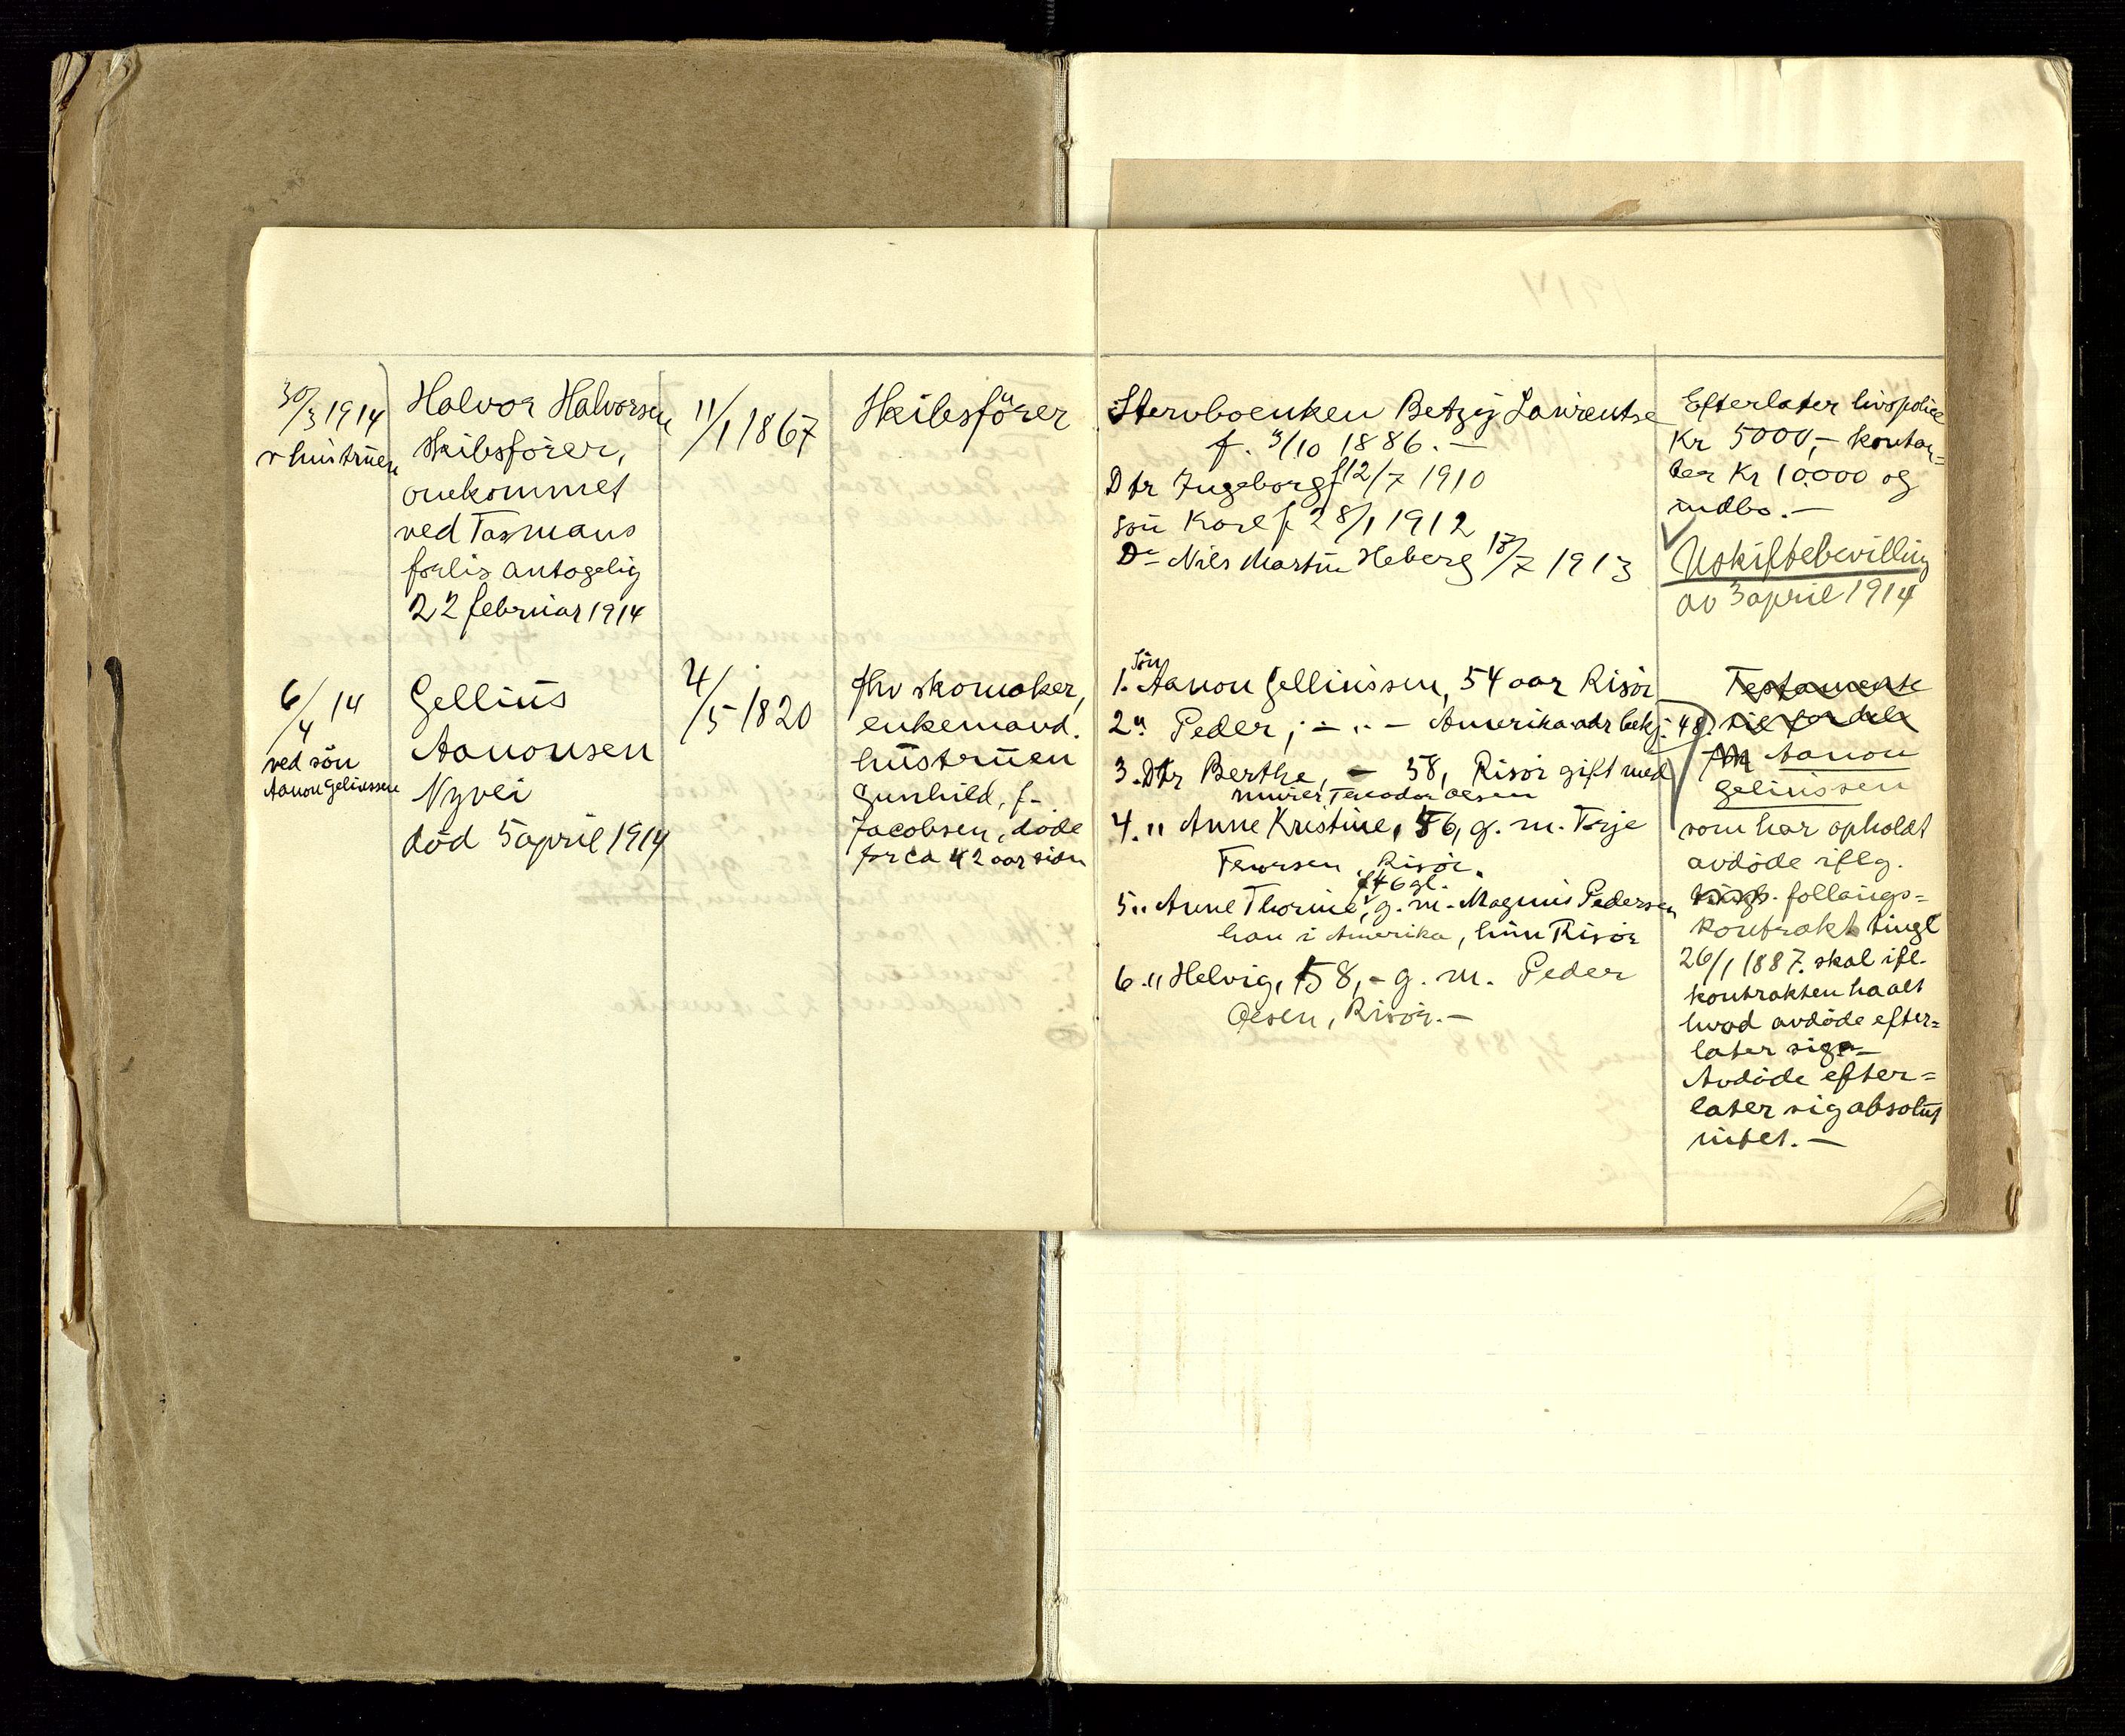 30/3 1914
v hustruen
Halvor Halvorsen
skibsfører,
omkommet
ved Tasmans
forlis antagelig
22 februar 1914
11/1 1867
Skibsfører
Stervboenken Betzy Laurentse
f. 3/10 1886. —
Dtr Ingeborg f 12/7 1910
søn Karl f 28/1 1912
Do Nils Martin Heberg 18/7 1913
Efterlater livspolice
Kr 5000,- kontan=
ter Kr 10.000 og
indbo. —
Uskiftebevilling
av 3 april 1914
6/4 14
ved søn
Aanon Geliussen
Gellius
Aanonsen
Nyvei
død 5 april 1914
4/5 1820
fhv skomaker,
enkemand.
hustruen
Gunhild, f.
Jacobsen, døde
for ca 42 aar siden
Søn
1. Aanon Gelliussen, 54 aar Risør
2. " Peder, - " - Amerika adr bekj. 48
3. Dtr Berthe, - 58, Risør gift med
murer Teodor Olsen
4. " Anne Kristine, 56, g. m. Terje
Terorsen, Risør.
46 gl.
5. " Anne Thorine, g. m. Magnus Pedersen
han i Amerika, hun Risør
6. " Helvig, 58, - g. m. Peder
Olsen, Risør. —
Testamente
til fordel
Aanon
Geliussen
som har opholdt
avdøde iflg.
follaugs=
kontrakt tingl
26/1 1887. skal ifl.
kontrakten ha alt
hvad avdøde efter=
later sig —
Avdøde efter=
later sig absolut
intet. —